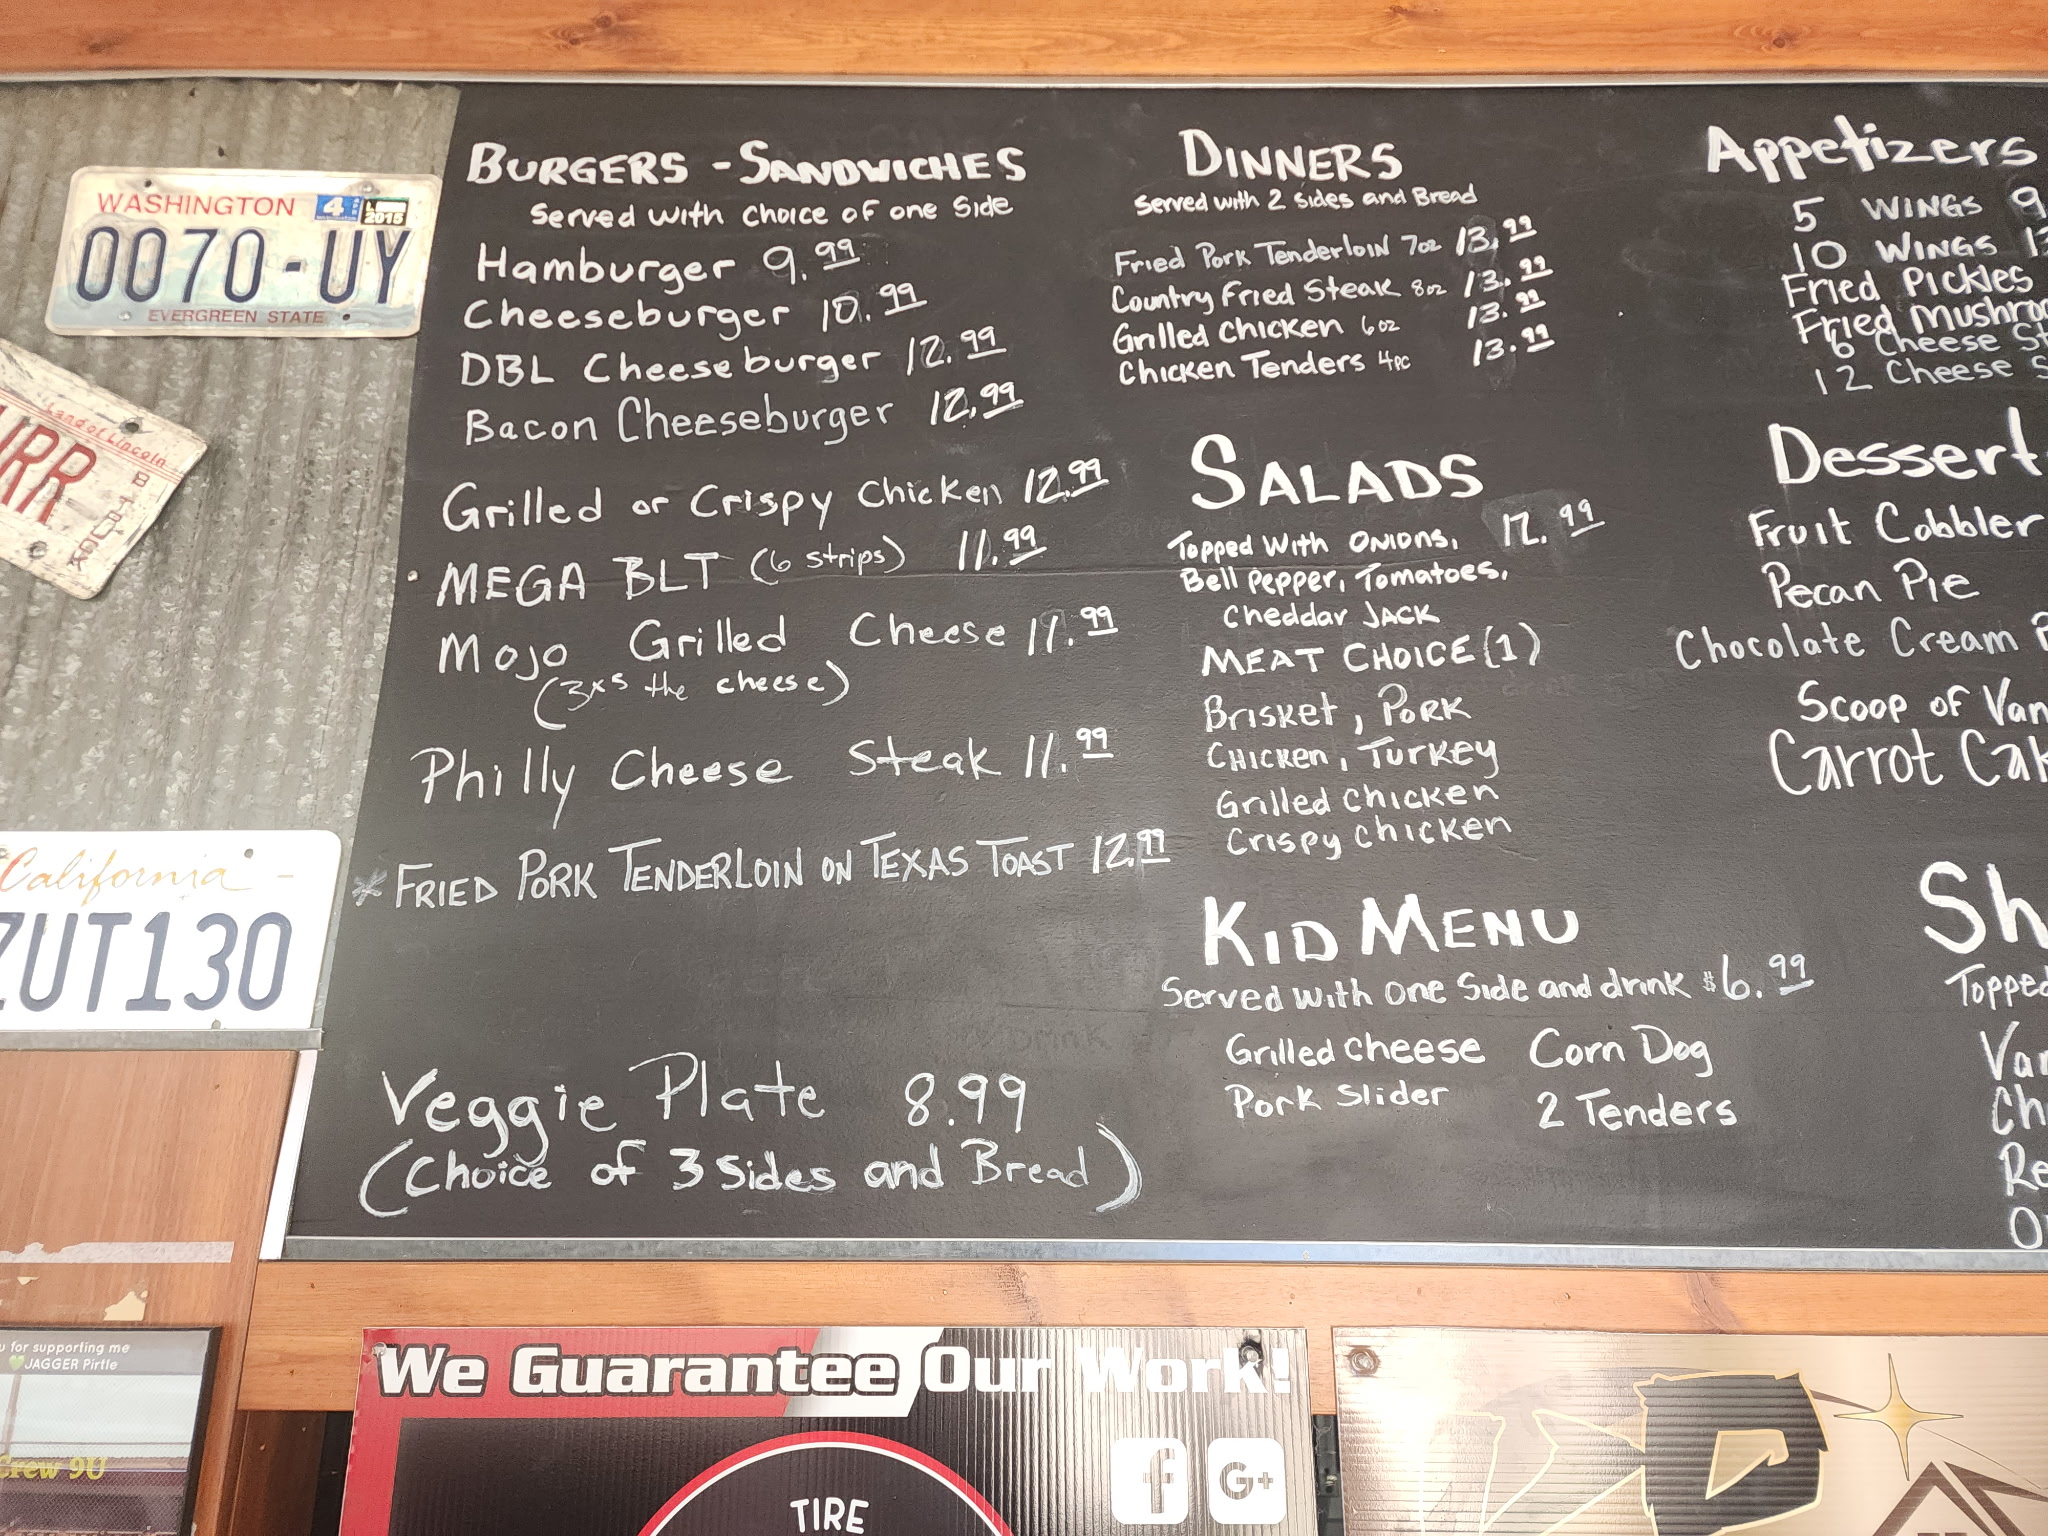 WASHINGTON
4
APR
2015
0070-UY
EVERGREEN STATE
Land of Lincoln
URR
California
ZUT130
BURGERS - SANDWICHES
Served with choice of one Side
Hamburger 9.99
Cheeseburger 10.99
DBL Cheeseburger 12.99
Bacon Cheeseburger 12.99
Grilled or Crispy Chicken 12.99
• MEGA BLT (6 strips) 11.99
Mojo Grilled Cheese 11.99
(3xs the cheese)
Philly Cheese Steak 11.99
* FRIED PORK TENDERLOIN ON TEXAS TOAST 12.99
Veggie Plate 8.99
(Choice of 3 Sides and Bread)
DINNERS
Served with 2 sides and Bread
Fried Pork Tenderloin 7oz 13.99
Country Fried Steak 8oz 13.99
Grilled Chicken 6oz 13.99
Chicken Tenders 4pc 13.99
SALADS
Topped With Onions, 12.99
Bell pepper, Tomatoes,
Cheddar JACK
MEAT CHOICE (1)
Brisket, Pork
Chicken, Turkey
Grilled Chicken
Crispy Chicken
KID MENU
Served with one Side and drink $6.99
Grilled Cheese Corn Dog
Pork Slider 2 Tenders
Appetizers
5 WINGS 9
10 WINGS
Fried Pickles
Fried Mushroo
6 Cheese St
12 Cheese S
Dessert
Fruit Cobbler
Pecan Pie
Chocolate Cream P
Scoop of Van
Carrot Cak
Sh
Topped
Van
Ch
Re
O
u for supporting me
JAGGER Pirtle
Crew 9U
We Guarantee Our Work!
TIRE
f G+